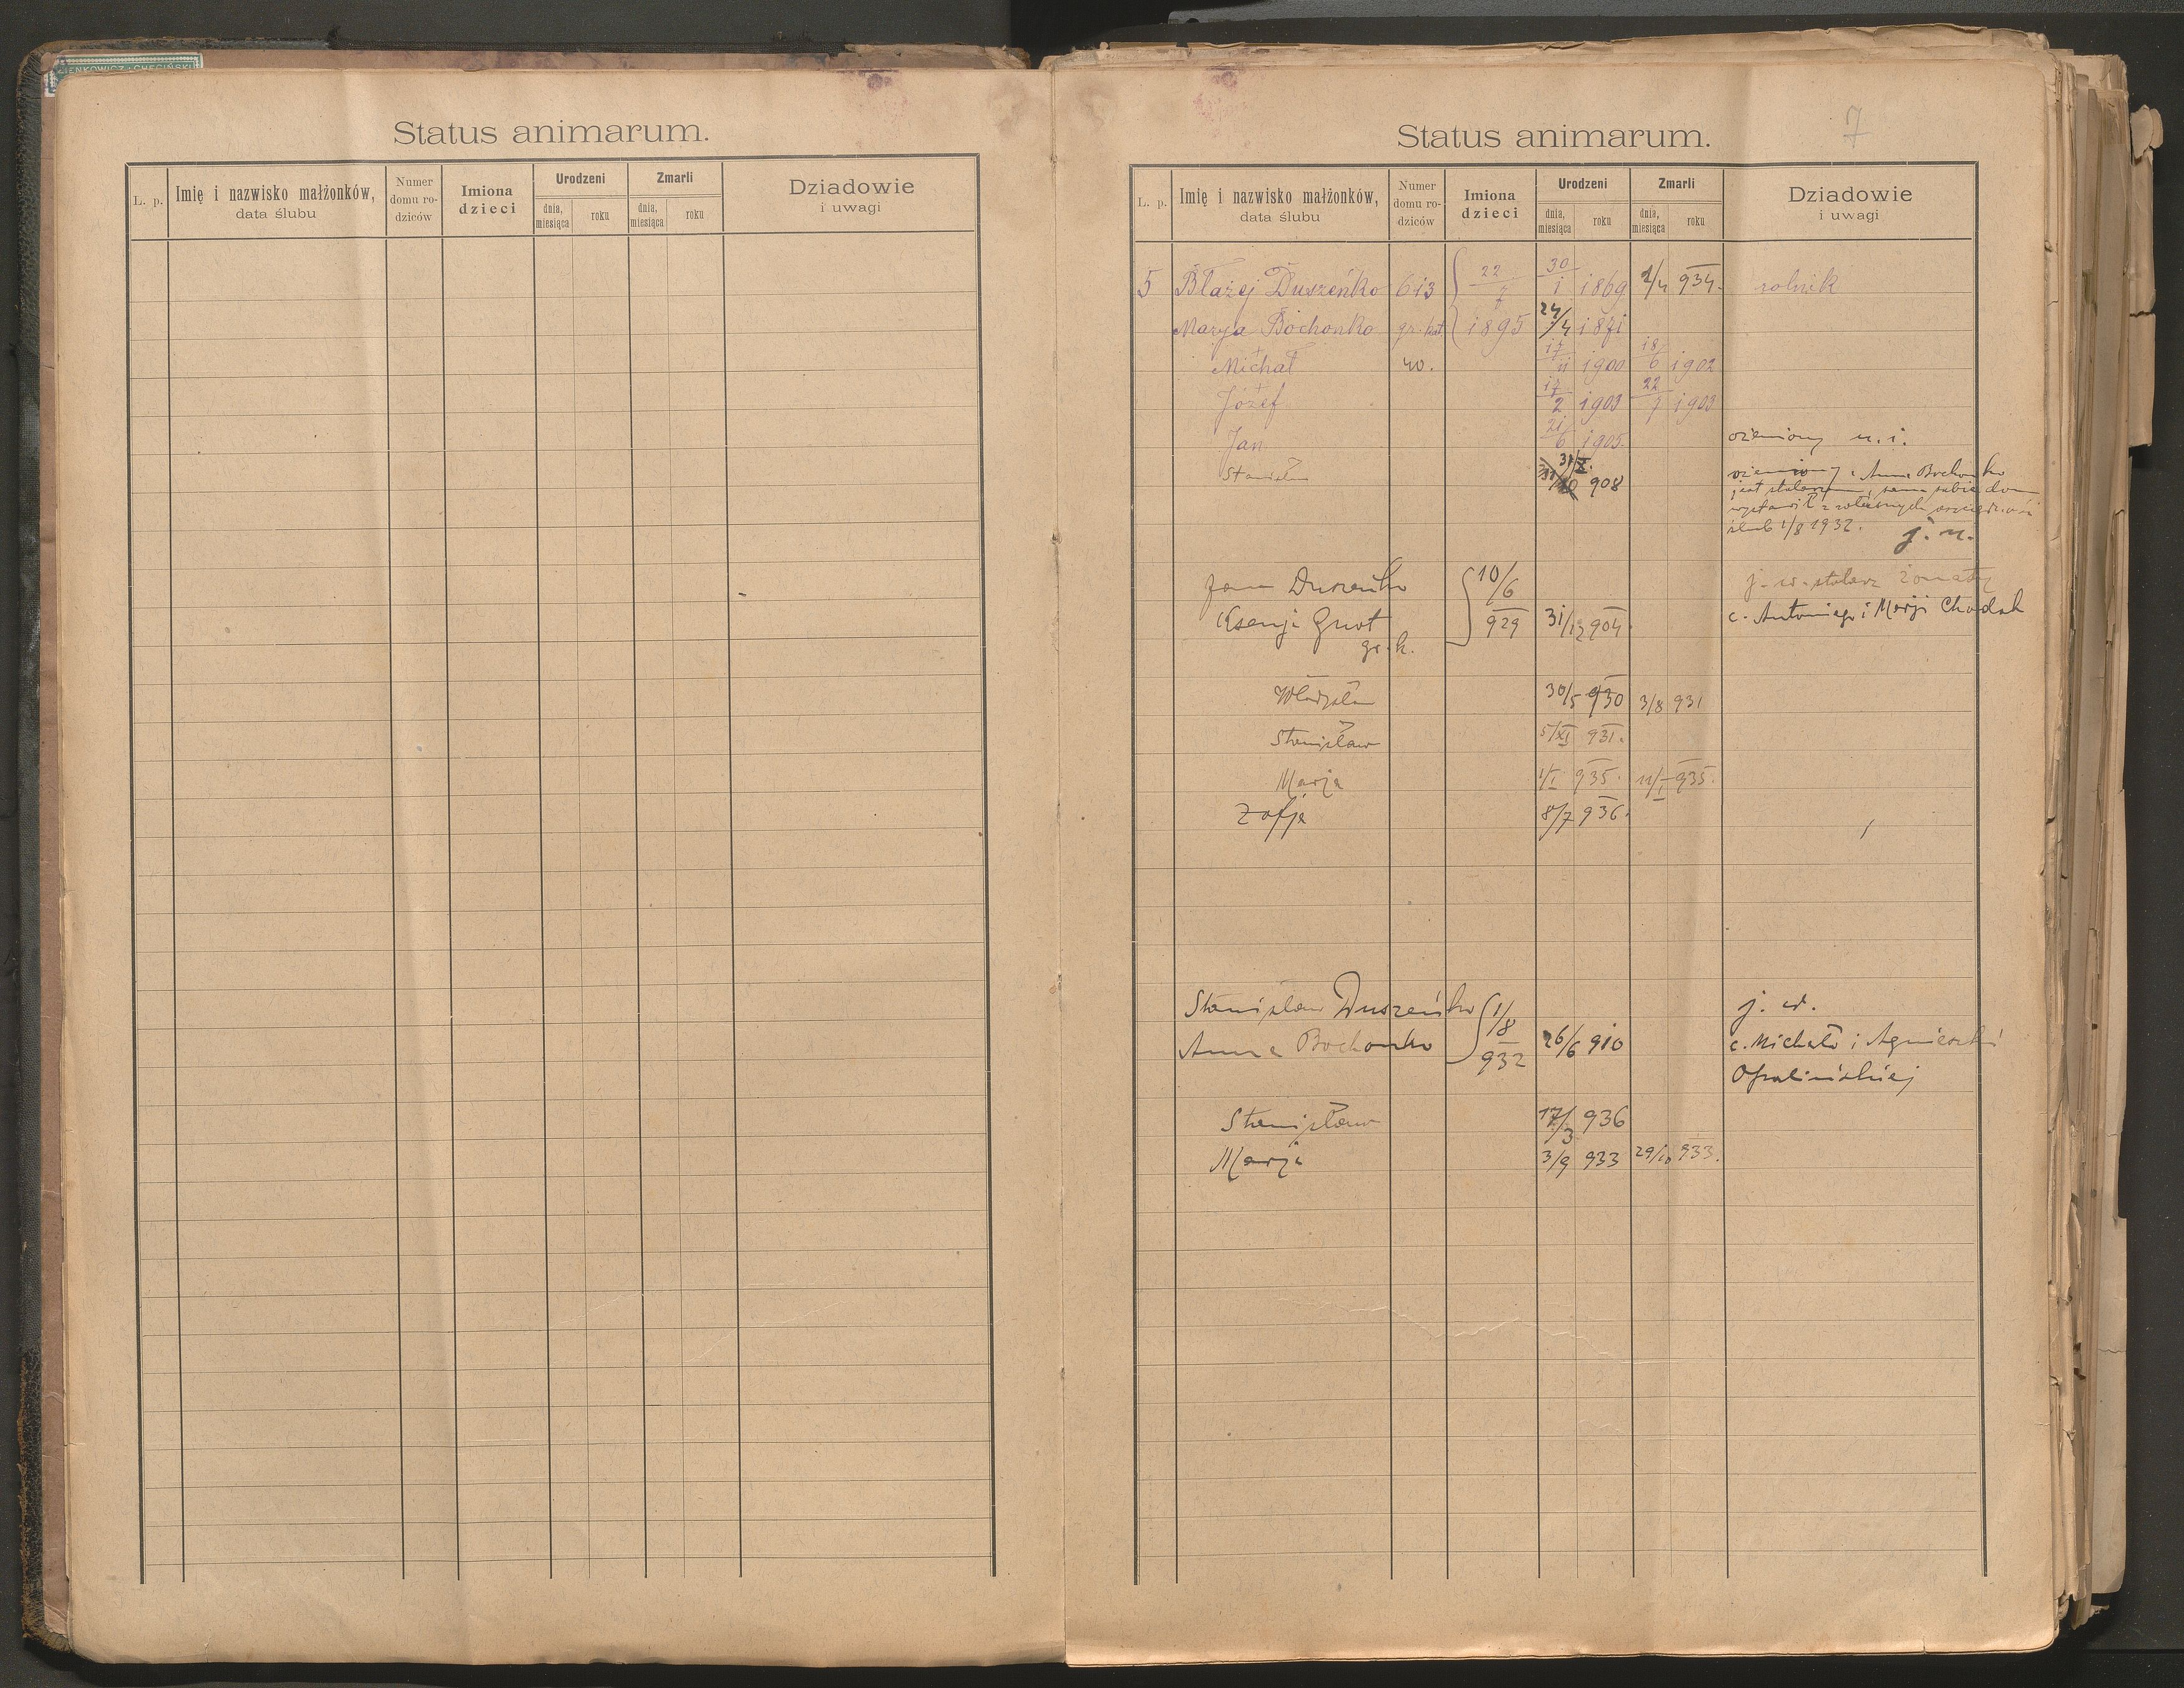 IENKOWICZ i CHĘCIŃSKI
Status animarum.
L. p.
Imię i nazwisko małżonków,
data ślubu
Numer
domu ro-
dziców
Imiona
dzieci
Urodzeni
dnia,
miesiąca
roku
Zmarli
dnia,
miesiąca
roku
Dziadowie
i uwagi
7
Status animarum.
L. p.
Imię i nazwisko małżonków,
data ślubu
Numer
domu ro-
dziców
Imiona
dzieci
Urodzeni
dnia,
miesiąca
roku
Zmarli
dnia,
miesiąca
roku
Dziadowie
i uwagi
5 Błażej Duszeńko 613 22/7 30/1 1869 2/4 934. rolnik
Marya Bochonko gr. kat 1895 24/4 1871
Michał 40. 17/11 1900 18/6 1902
Józef 17/2 1903 22/7 1903
Jan 21/6 1905. ożeniony n. i.
Stanisław 31/X. 908 ożeniony z Anna Bochonko
jest stolarzem, sam sobie dom
wystawił z własnych
ślub 1/8 1932. j. n.
Jan Duszeńko 10/6 j. w. stolarz żonaty
Ksenja Gnot 929 31/12 904. c. Antoniego i Marji Chodak
gr. k.
Władysław 30/5 930 3/8 931
Stanisław 5/XI 931.
Marja 1/I 935. 11/I 935.
Zofja 8/7 936.
Stanisław Duszeńko 1/8 j. w.
Anna Bochonko 932 26/6 910 c. Michała i Agnieszki
Opalińskiej
Stanisław 17/3 936
Marja 3/9 933 29/10 933.